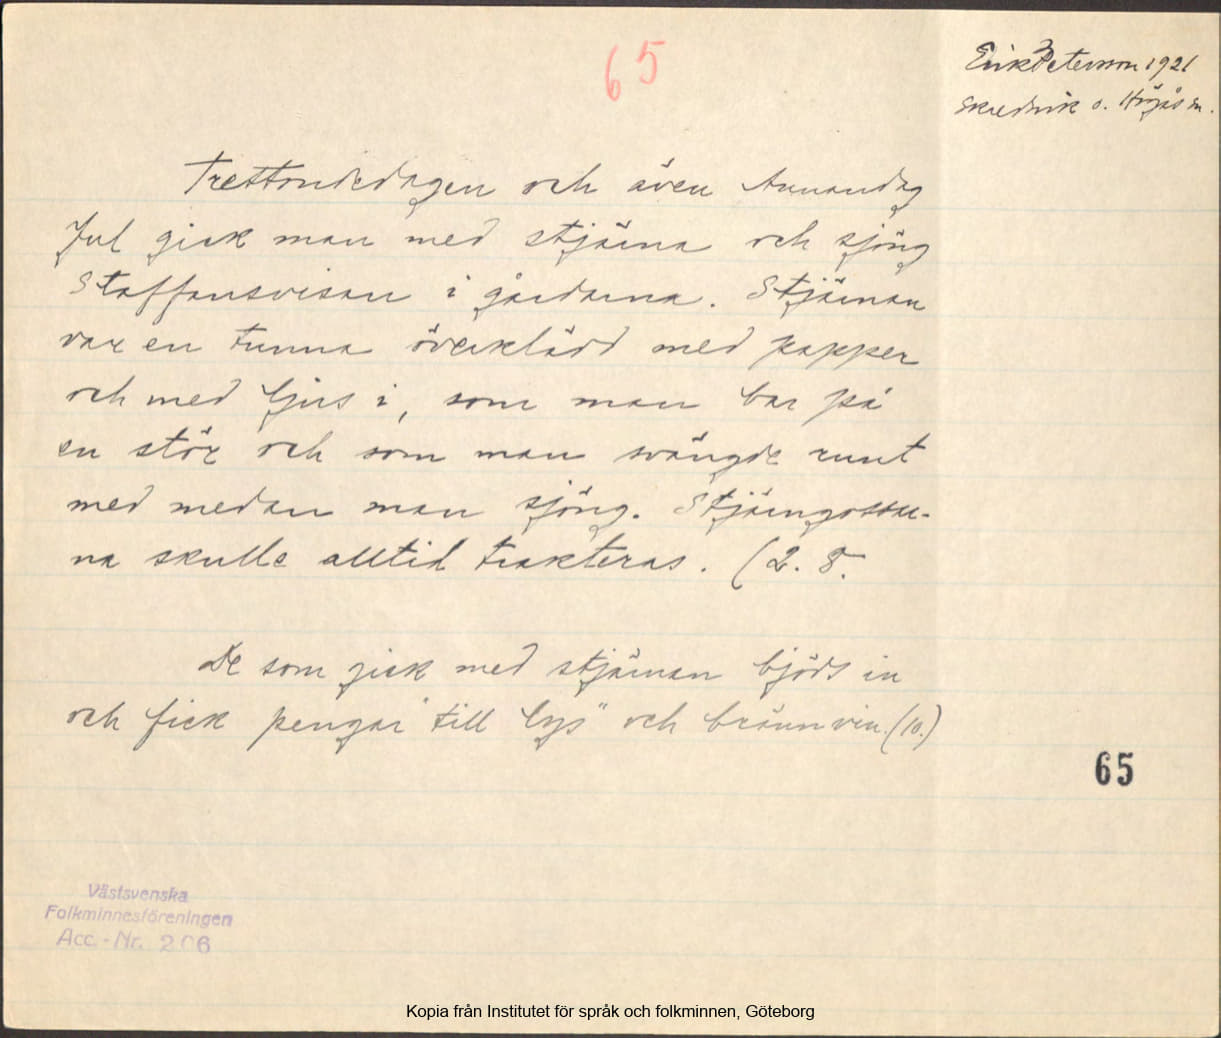 65
Erik Peterson 1921
Skredsvik o. Högås sn.
Trettondedagen och även Annandag
Jul gick man med stjärna och sjöng
Staffansvisan i gårdarna. Stjärnan
var en tunna överklädd med papper
och med ljus i, som man bar på
en stör och som man svängde runt
med medan man sjöng. Stjärngossar-
na skulle alltid trakteras. (2. 8.
De som gick med stjärnan bjöds in
och fick pengar "till lys" och brännvin. (10.)
65
Västsvenska
Folkminnesföreningen
Acc. - Nr. 206
Kopia från Institutet för språk och folkminnen, Göteborg